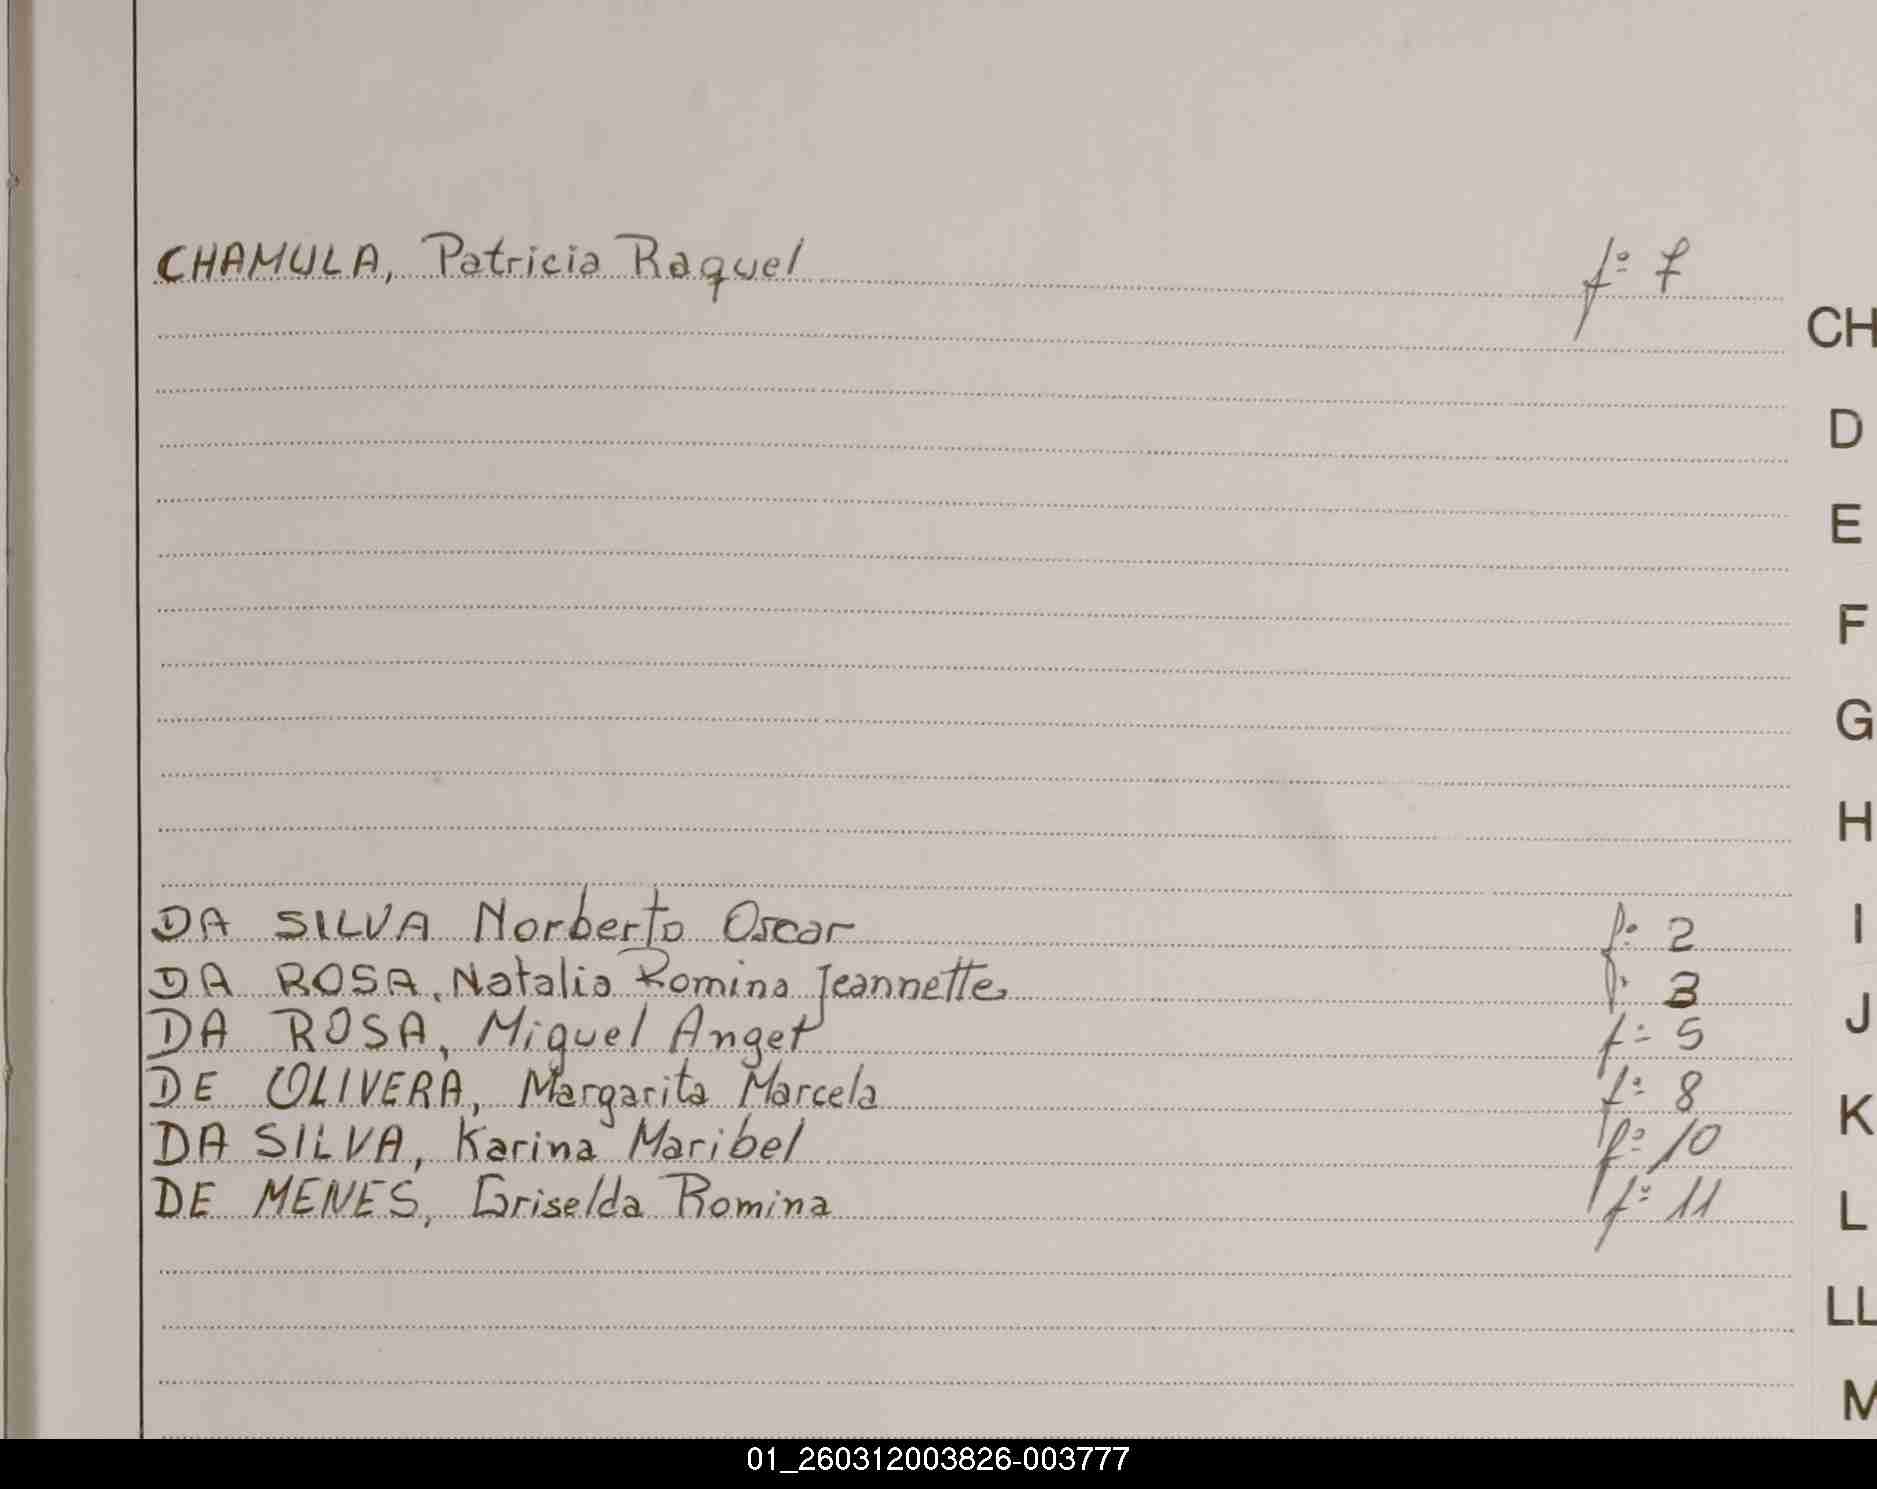 CHAMULA, Patricia Raquel fº 7
CH
D
E
F
G
H
DA SILVA Norberto Oscar fº 2
I
DA ROSA, Natalia Romina Jeannette fº 3
J
DA ROSA, Miguel Angel fº 5
DE OLIVERA, Margarita Marcela fº 8
K
DA SILVA, Karina Maribel fº 10
DE MENES, Griselda Romina fº 11
L
LL
M
01_260312003826-003777